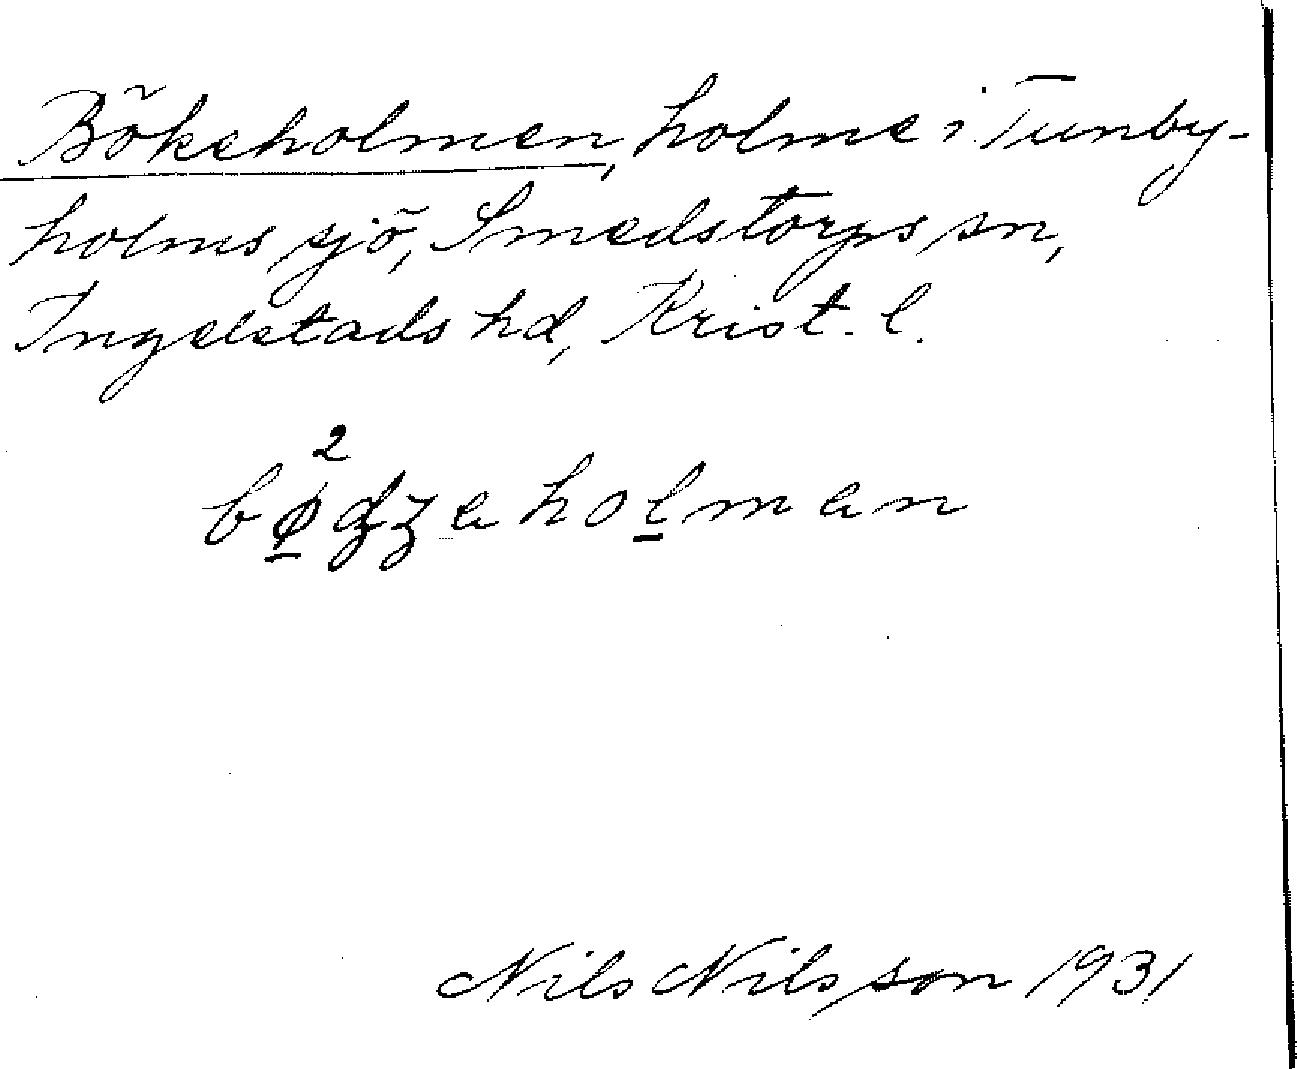 Bökeholmen, holme i Tunby-
holms sjö, Smedstorps sn,
Ingelstads hd, Krist. l.
Nils Nilsson 1931